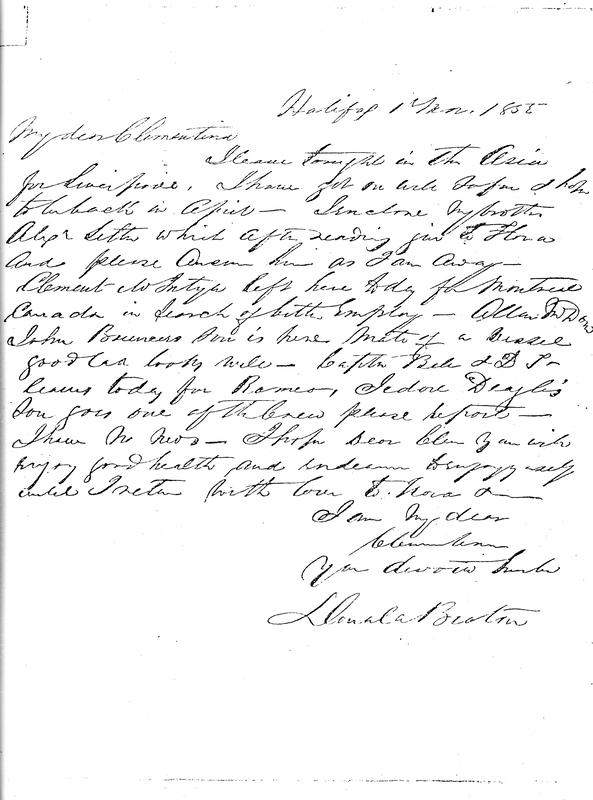 Halifax 1 1855
My dear Clementina
I leave tonight in the Asia
for Liverpool. I have got on well so far & hope
to be back in April — I enclose my brother
Alexr letter which after reading give to Flora
and please answer him as I am away —
Clement McIntyre left here today for Montreal
Canada in search of better Employ — Allan
John son is here Mate of a vessel
good Lad looks well — Captn Bell & D
leaves today for Isidore
son goes one of the Crew please report —
I have no news — I hope Dear Clem you will
enjoy good health and endeavour to enjoy yself
until I return with love to Flora
I am My dear
Clementina
Your devoted
Donald Beaton